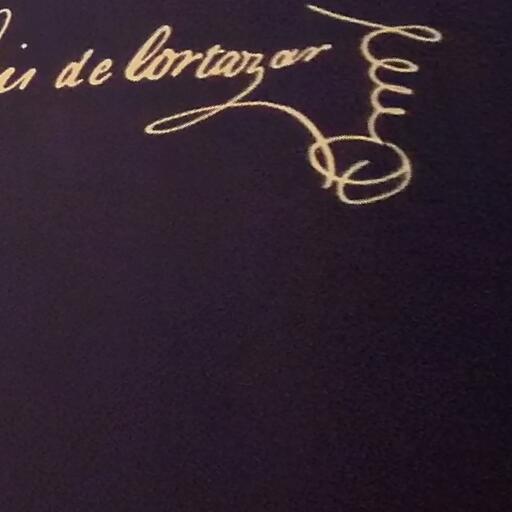 is de Cortazar